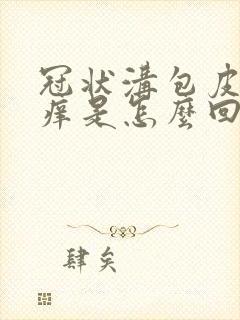 冠状溝包皮
痒是怎麼回
肆矣